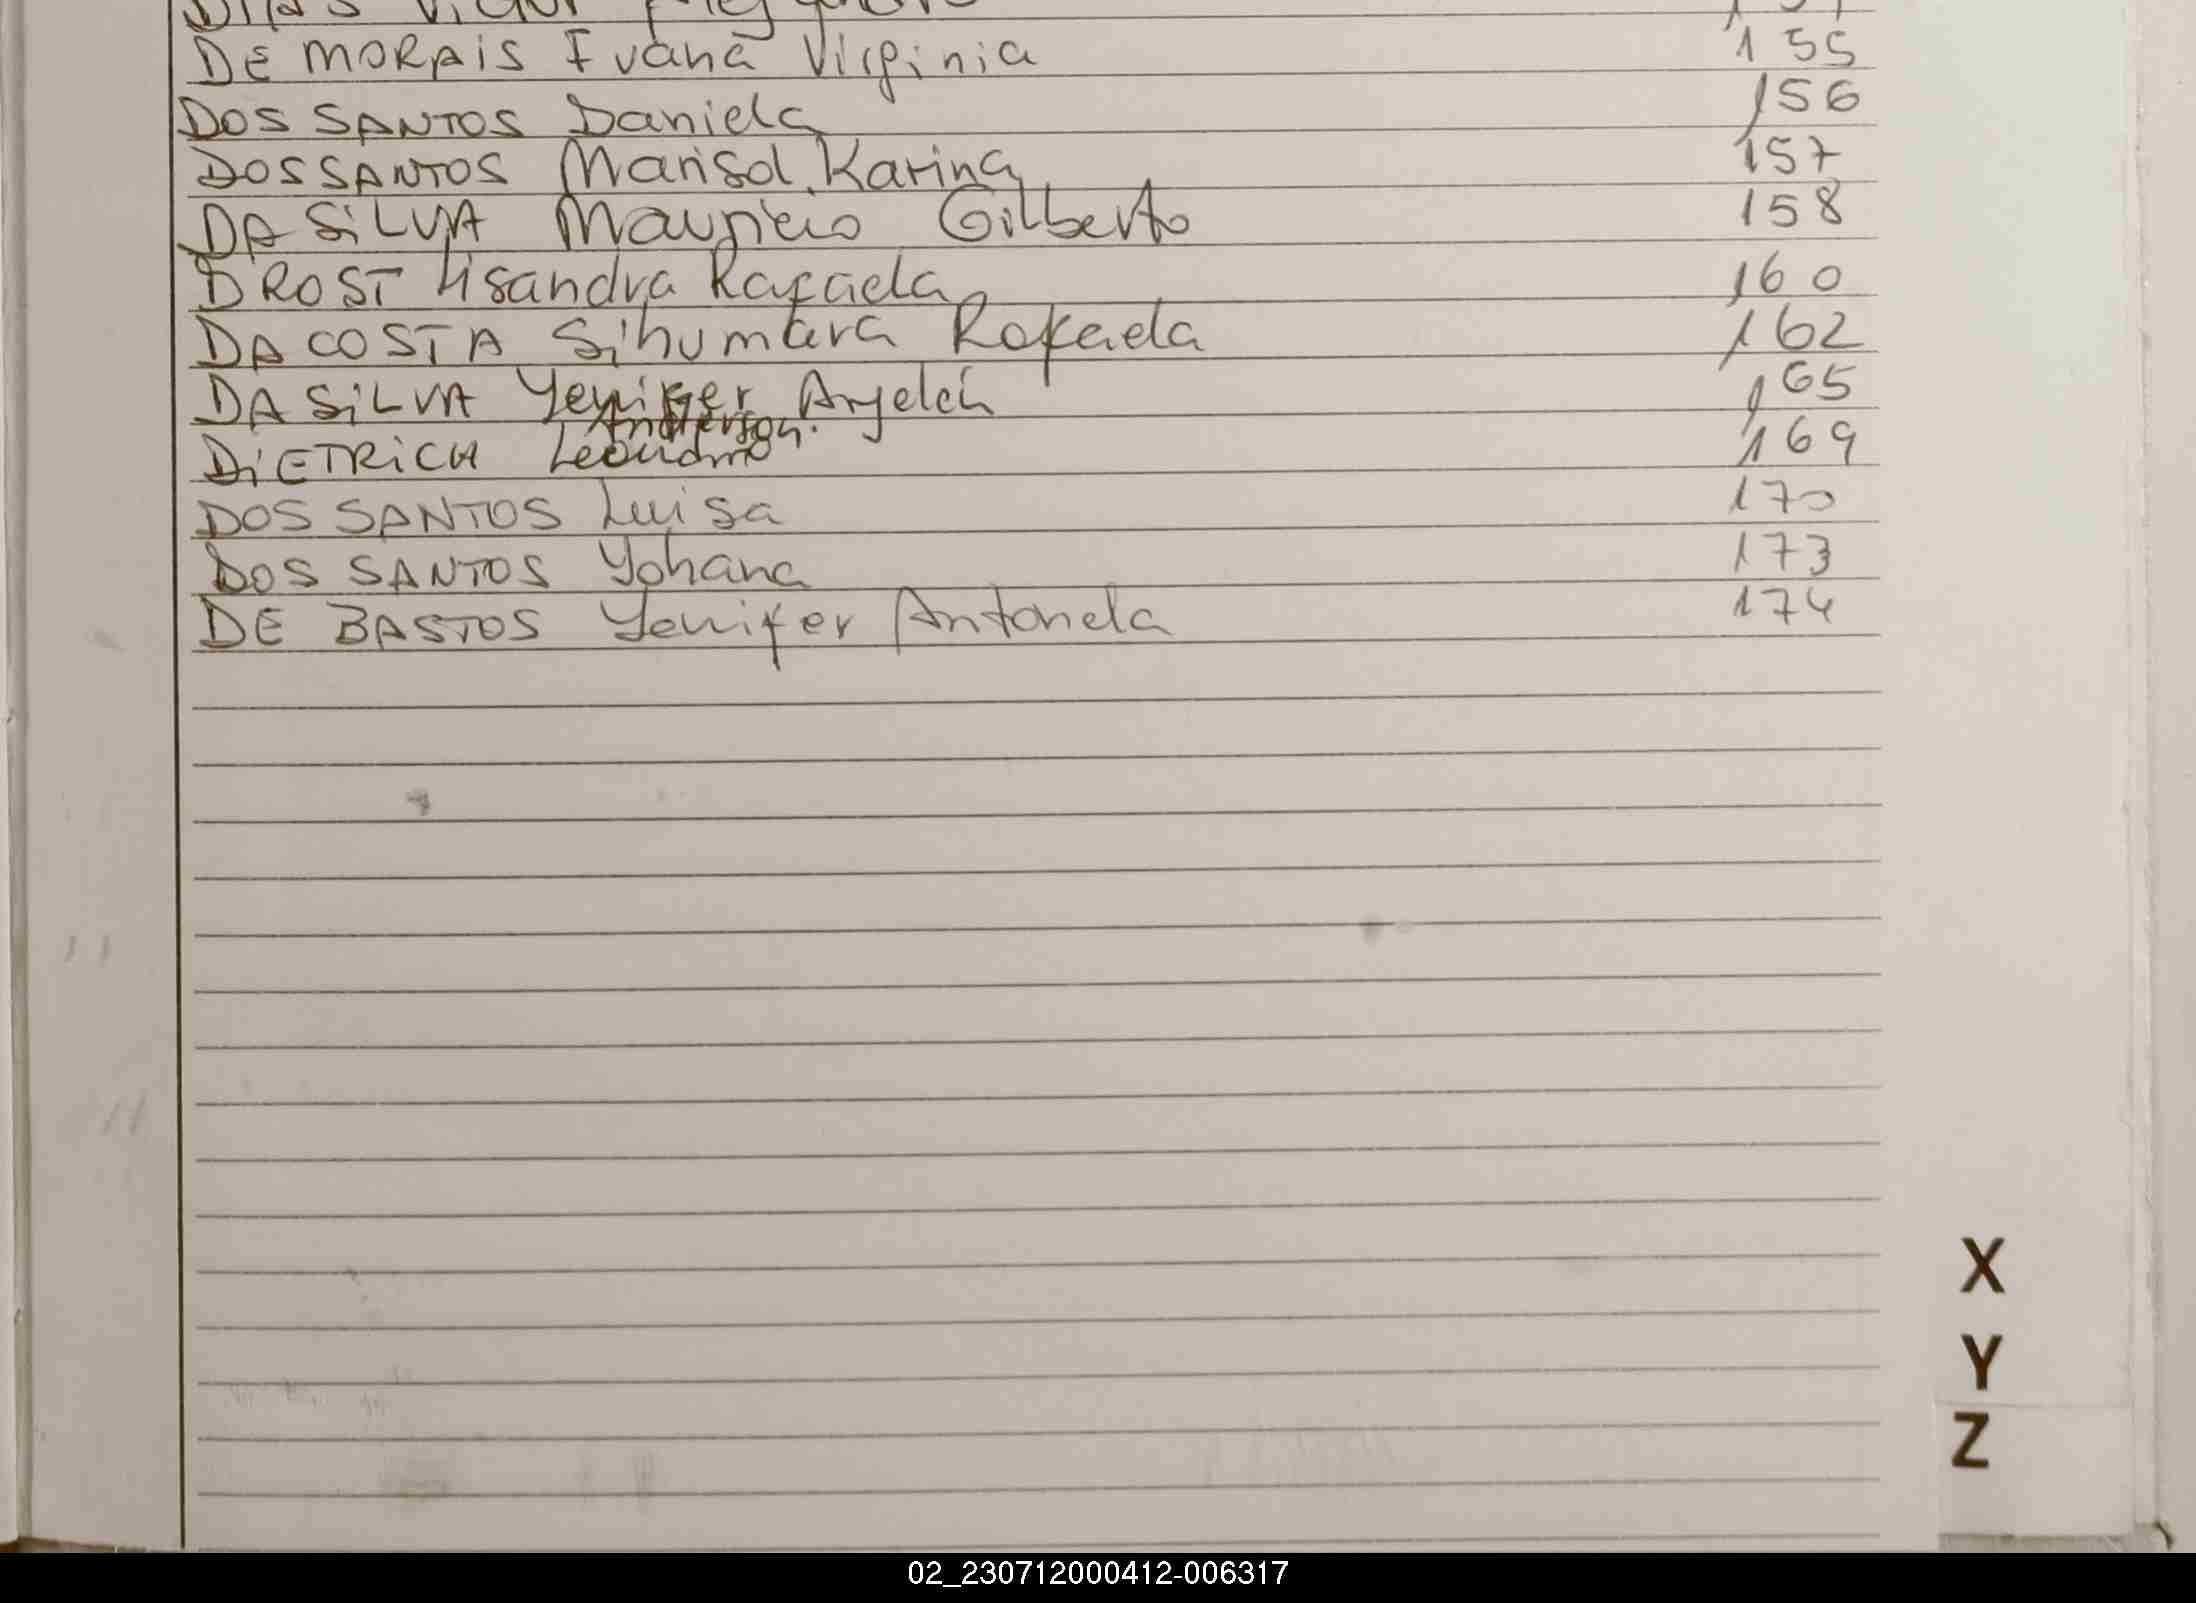 DE MORAIS Ivana Virginia 155
DOS SANTOS Daniela 156
DOS SANTOS Marisol Karina 157
DA SiLVA Mauricio Gilberto 158
DROST Lisandra Rafaela 160
DA COSTA Sihumara Rafaela 162
DA SiLVA Yenifer Anjelca 165
Anderson.
DiETRiCH Leonardo 169
DOS SANTOS Luisa 170
DOS SANTOS Yohana 173
DE BASTOS Yenifer Antonela 174
X
Y
Z
02_230712000412-006317